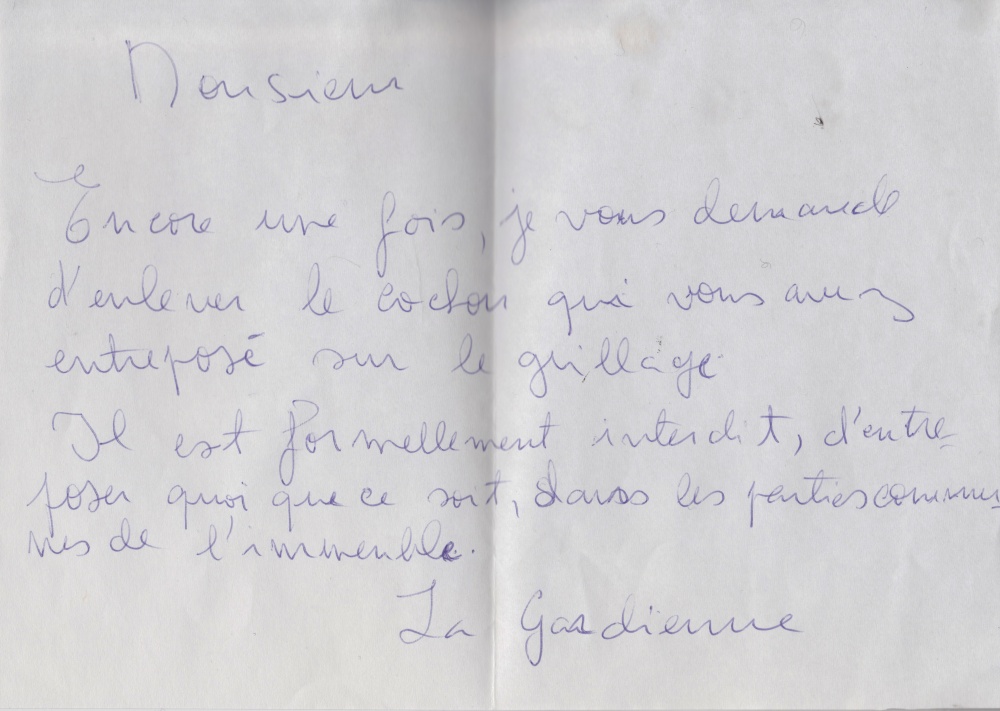 Monsieur
Encore une fois, je vous demande
d'enlever le cochon qui vous avez
entreposé sur le grillage
Il est formellement interdit, d'entre-
poser quoi que ce soit, dans les parties commu-
nes de l'immeuble.
La Gardienne